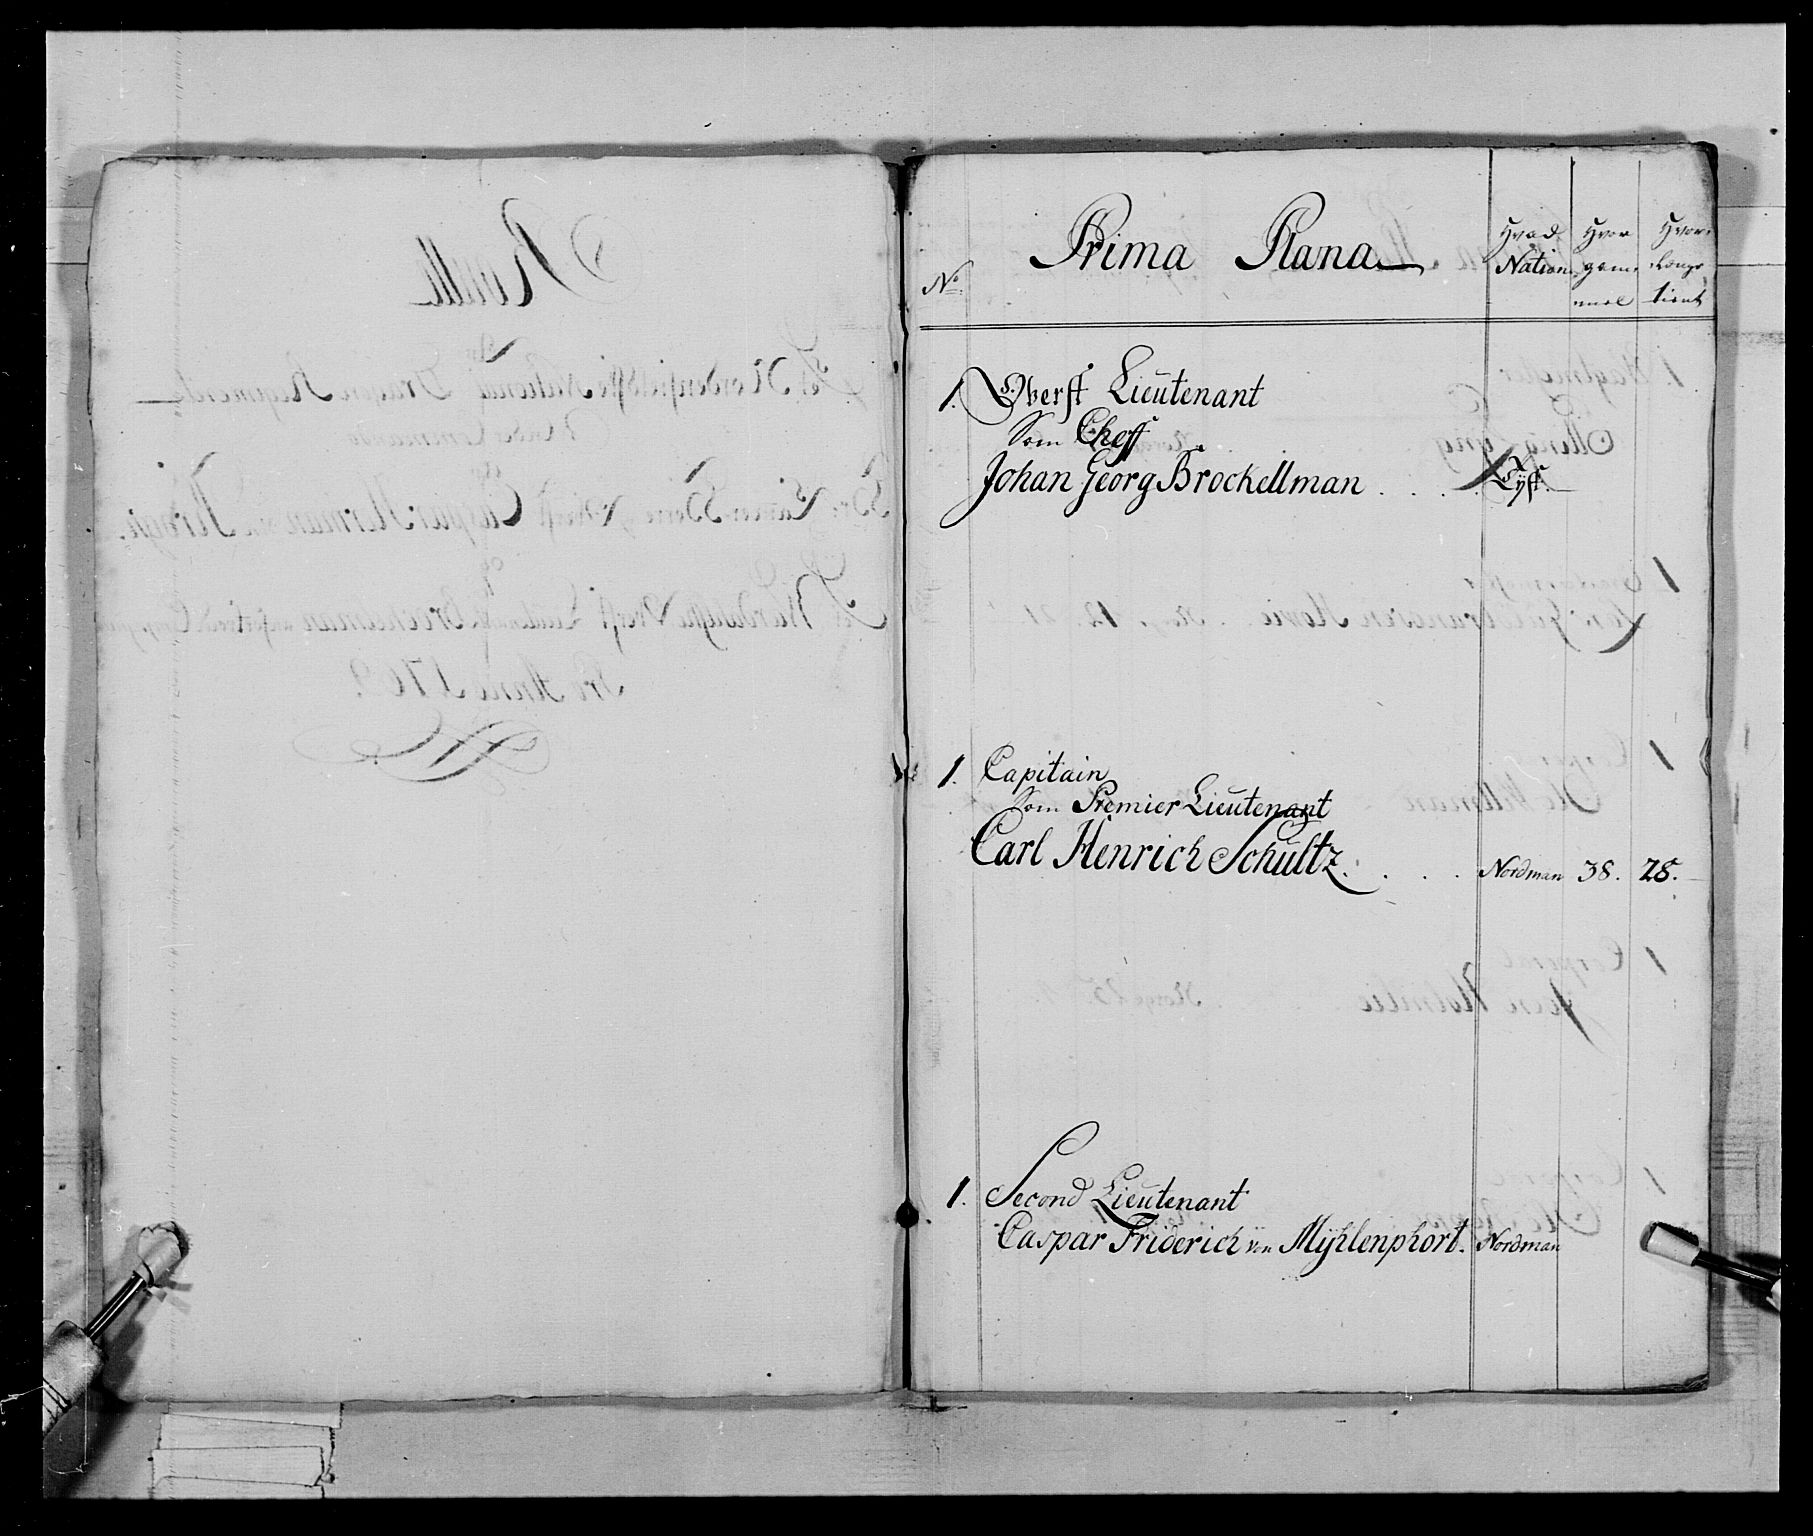 No.
Prima Plana
Hvad Nation
Hvor gammel
Hvor længe tient
1. Oberst Lieutenant
Som Cheff
Johan Georg Brockellman . . . . Tÿsk.
1. Capitain
Som Premier Lieutenant
Carl Henrich Schultz . . . . Nordman 38. 28.
1. Second Lieutenant
Caspar Friderich von Mÿhlenphort. Nordman